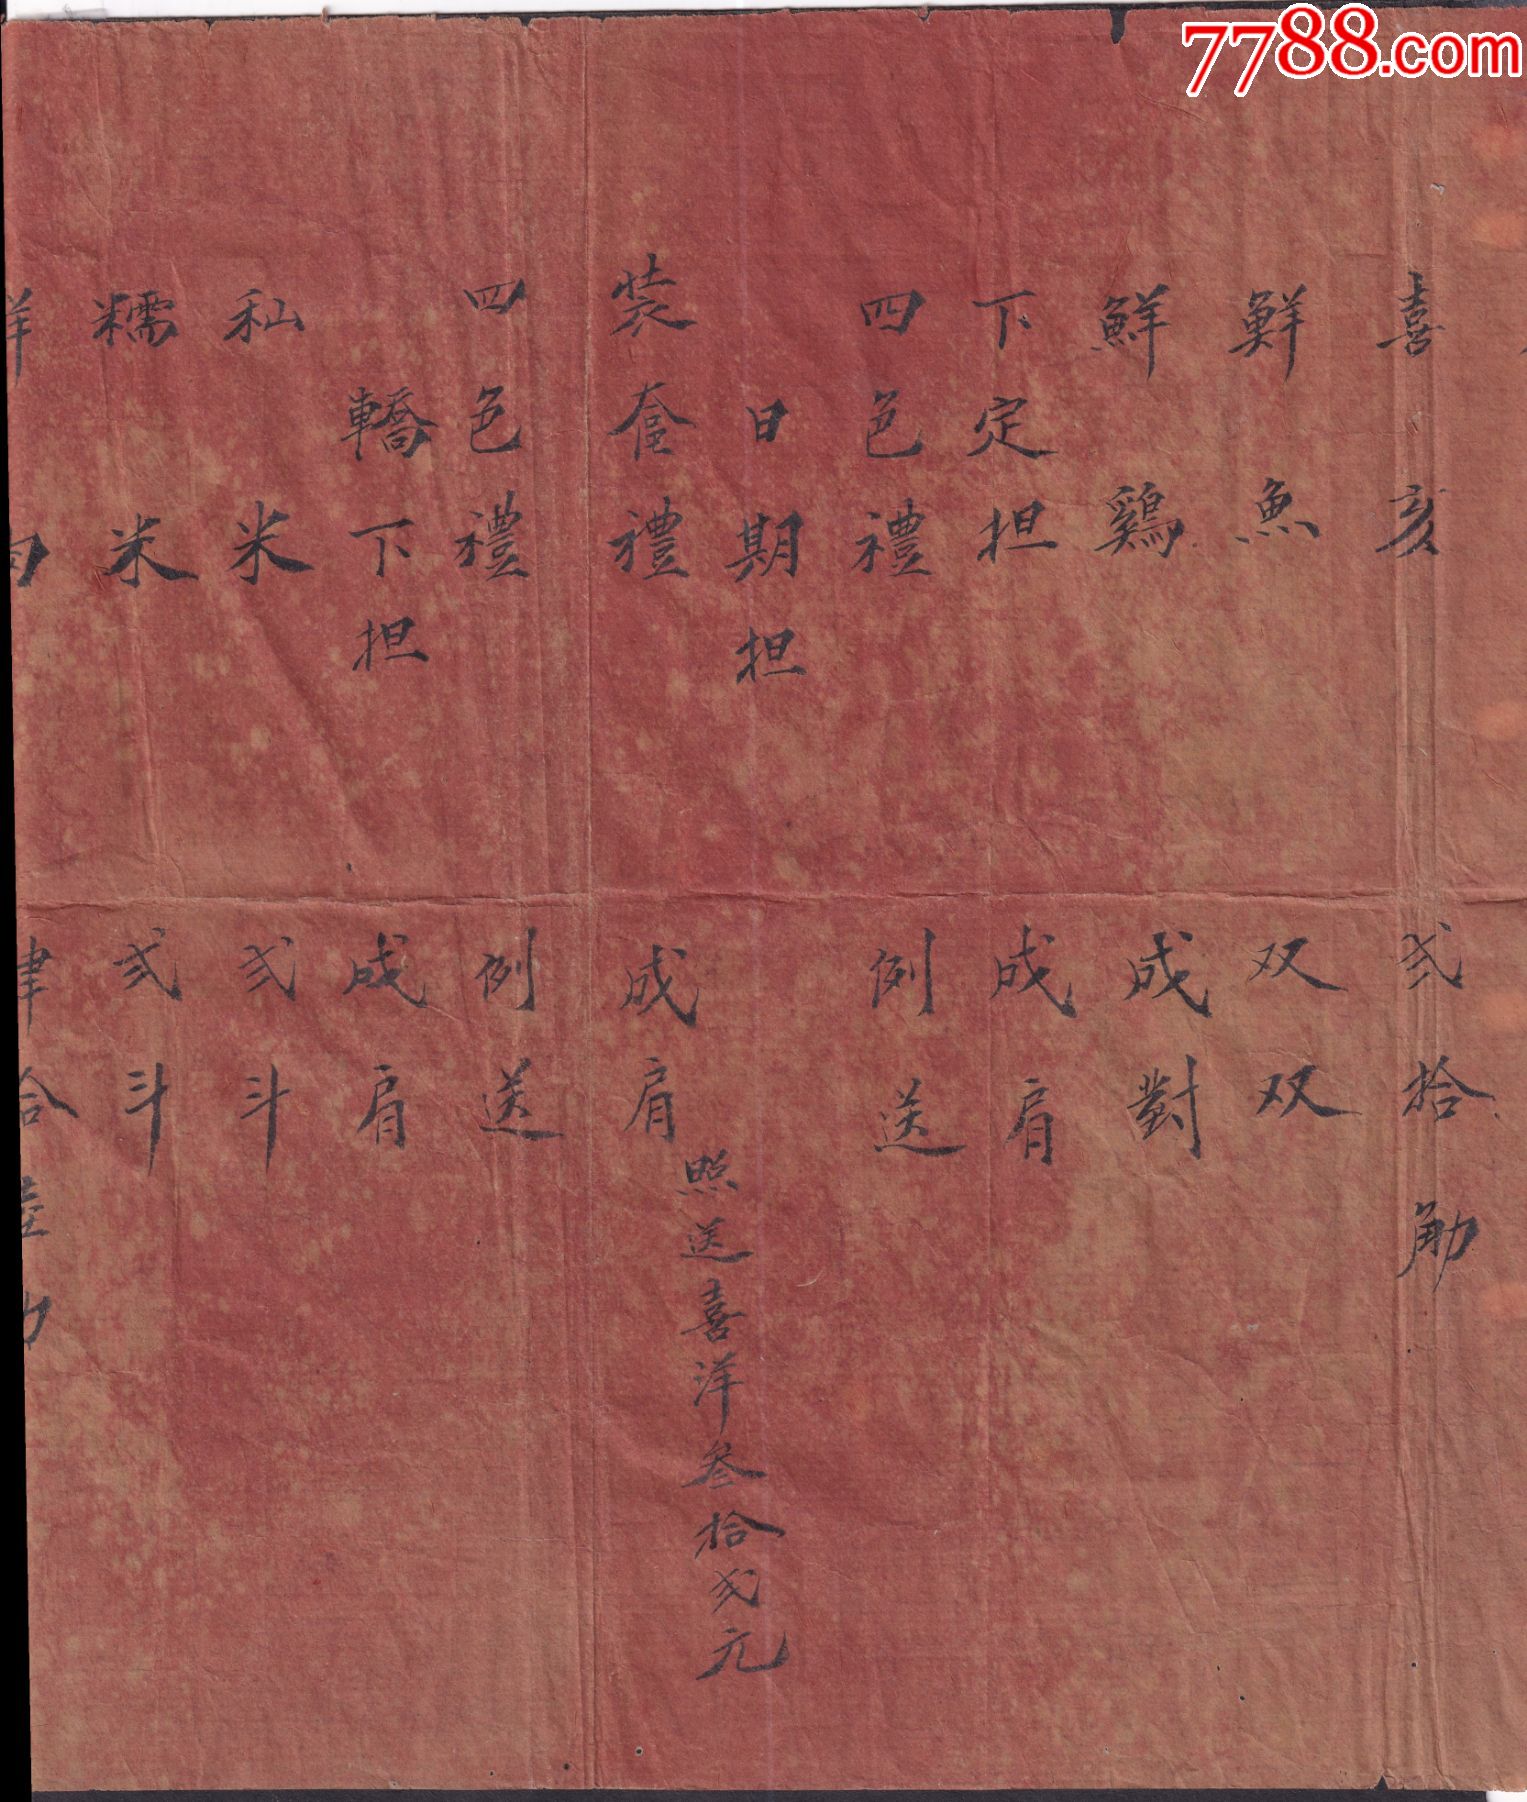 7788.com
喜亥 弍拾觔
鮮魚 双双
鮮鷄 成對
下定担 成肩
四色禮 例送
日期担 照送喜洋叁拾弍元
装奩禮 成肩
四色禮 例送
轎下担 成肩
秈米 弍斗
糯米 弍斗